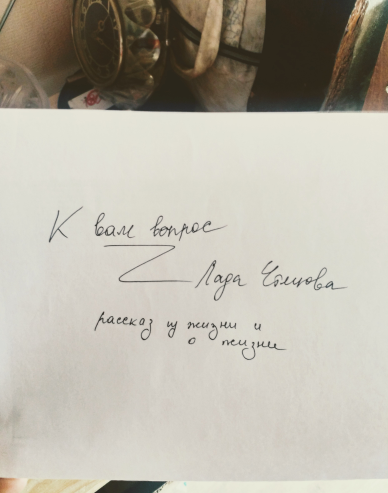 К вам вопрос
Лада
рассказ из жизни и
о жизни